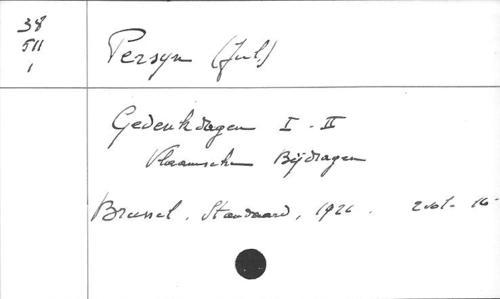 38
511
1
Persyn (Jul.)
Gedenkdagen I - II
Vlaamsche Bijdragen
Brussel, Standaard, 1926. 2 vol - 16-